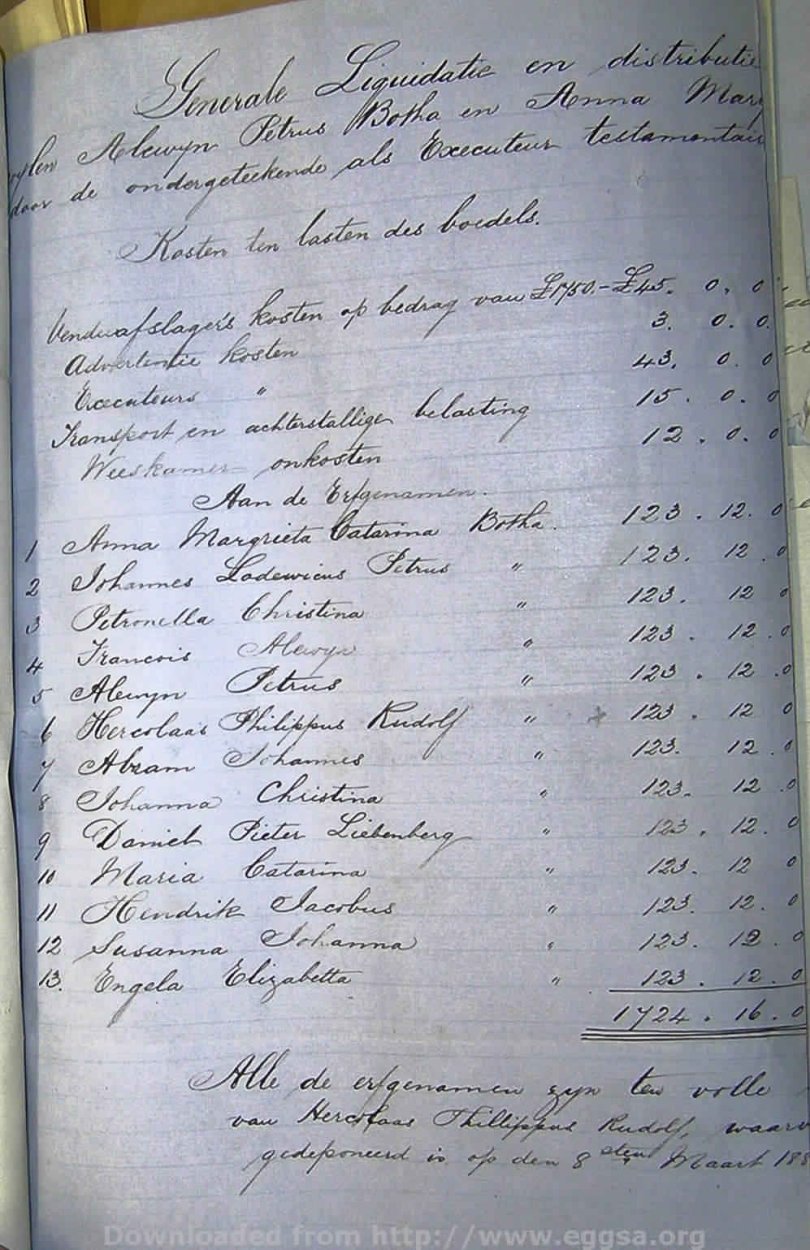 Generale Liquidatie en distributie
wylen Alewyn Petrus Botha en Anna Mar
door de ondergeteekende als Executeur testamentair
Kosten ten lasten des boedels.
Venduafslagers kosten op bedrag van £1750.-£45. 0. 0
Advertentie kosten 3. 0. 0.
Executeurs " 43. 0. 0
Transport en achterstallige belasting 15. 0. 0
Weeskamer onkosten 12. 0. 0
Aan de Erfgenamen.
1 Anna Margrieta Catarina Botha. 123. 12. 0
2 Johannes Lodewicus Petrus " 123. 12. 0
3 Petronella Christina " 123. 12 0
4 Francois Alewyn " 123. 12. 0
5 Alewyn Petrus " 123. 12. 0
6 Hercolaas Philippus Rudolf " + 123. 12 0
7 Abram Johannes " 123. 12. 0
8 Johanna Christina " 123. 12. 0
9 Daniel Pieter Liebenberg " 123. 12. 0
10 Maria Catarina " 123. 12 0
11 Hendrik Jacobus " 123. 12. 0
12 Susanna Johanna " 123. 12. 0
13. Engela Elizabetta " 123. 12. 0
1724. 16. 0
Alle de erfgenamen zyn ten volle
van Hercolaas Phillippus Rudolf, waarv
gedeponeerd is op den 8sten Maart 188
Downloaded from http://www.eggsa.org